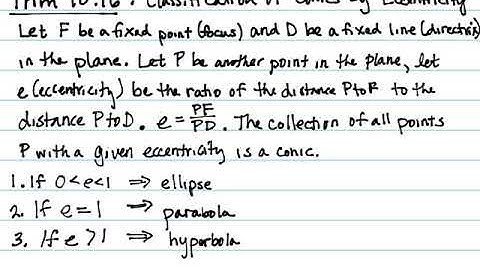 Thm 10.16: Classification of Conics by Eccentricity
Let F be a fixed point (focus) and D be a fixed line (directrix)
in the plane. Let P be another point in the plane, let
e (eccentricity) be the ratio of the distance P to F to the
distance P to D. e = PF/PD. The collection of all points
P with a given eccentricity is a conic.
1. If 0<e<1 ⇒ ellipse
2. If e=1 → parabola
3. If e>1 ⇒ hyperbola